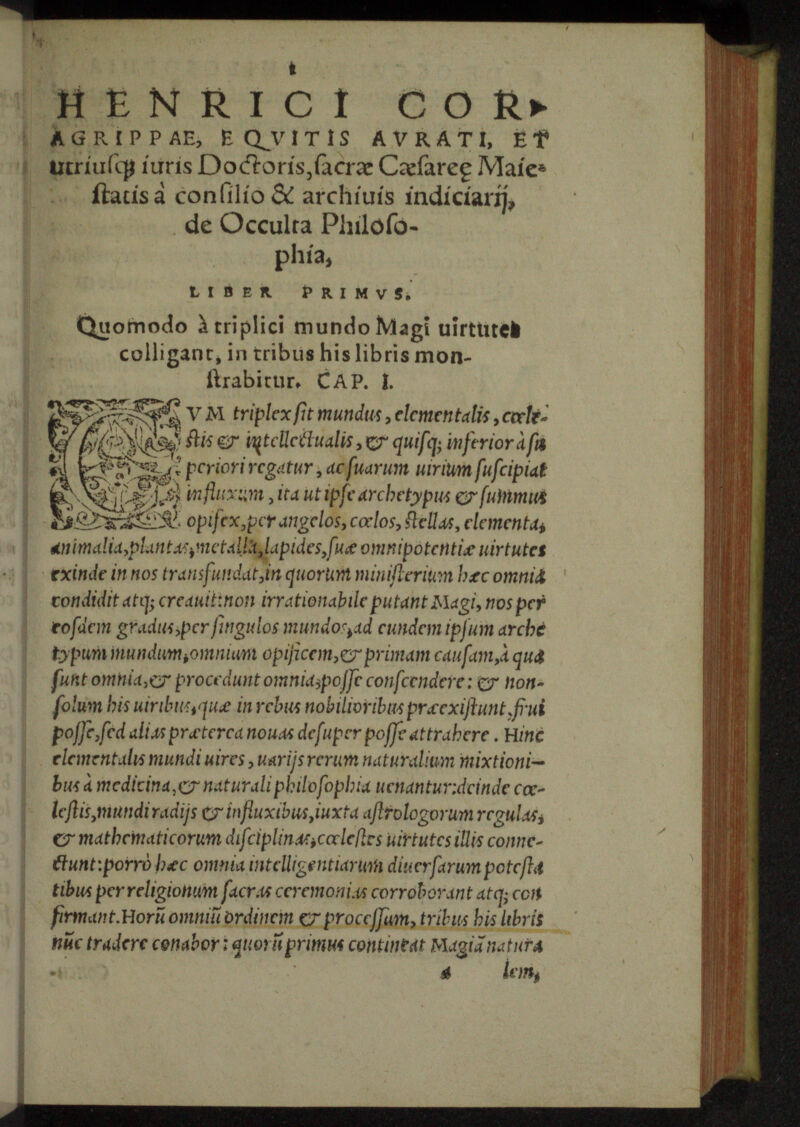 1
HENRICI COR-
AGRIPPAE, EQVITIS AVRATI, ET
utriuſqꝫ iuris Doctoris, ſacræ Cæſareę Maie-
ſtatis à conſilio & archiuis indiciarij,
de Occulta Philoſo-
phia,
LIBER PRIMVS.
Quomodo à triplici mundo Magi uirtutes
colligant, in tribus his libris mon-
ſtrabitur. CAP. I.
VM triplex ſit mundus, elementalis, cœle-
ſtis & intellectualis, & quiſqꝫ inferior à ſu
periori regatur, ac ſuarum uirium ſuſcipiat
influxum, ita ut ipſe archetypus & ſummus
opifex, per angelos, cœlos, ſtellas, elementa,
animalia, plantas, metalla, lapides, ſuæ omnipotentiæ uirtutes
exinde in nos transfundat, in quorum miniſterium hæc omnia
condidit atqꝫ creauit: non irrationabile putant Magi, nos per
eoſdem gradus, per ſingulos mundos, ad eundem ipſum arche
typum mundum, omnium opificem, & primam cauſam, à qua
ſunt omnia, & procedunt omnia, poſſe conſcendere: & non-
ſolum his uiribus, quæ in rebus nobilioribus præexiſtunt, frui
poſſe, ſed alias præterea nouas deſuper poſſe attrahere. Hinc
elementalis mundi uires, uarijs rerum naturalium mixtioni-
bus à medicina, & naturali philoſophia uenantur: deinde cœ-
leſtis, mundi radijs & influxibus, iuxta aſtrologorum regulas,
& mathematicorum diſciplinas, cœleſtes uirtutes illis conne-
ctunt: porrò hæc omnia intelligentiarum diuerſarum poteſta
tibus per religionum ſacras ceremonias corroborant atqꝫ con
firmant. Horū omniū ordinem & proceſſum, tribus his libris
nūc tradere conabor: quorū primus contineat Magiā natura
a lem,